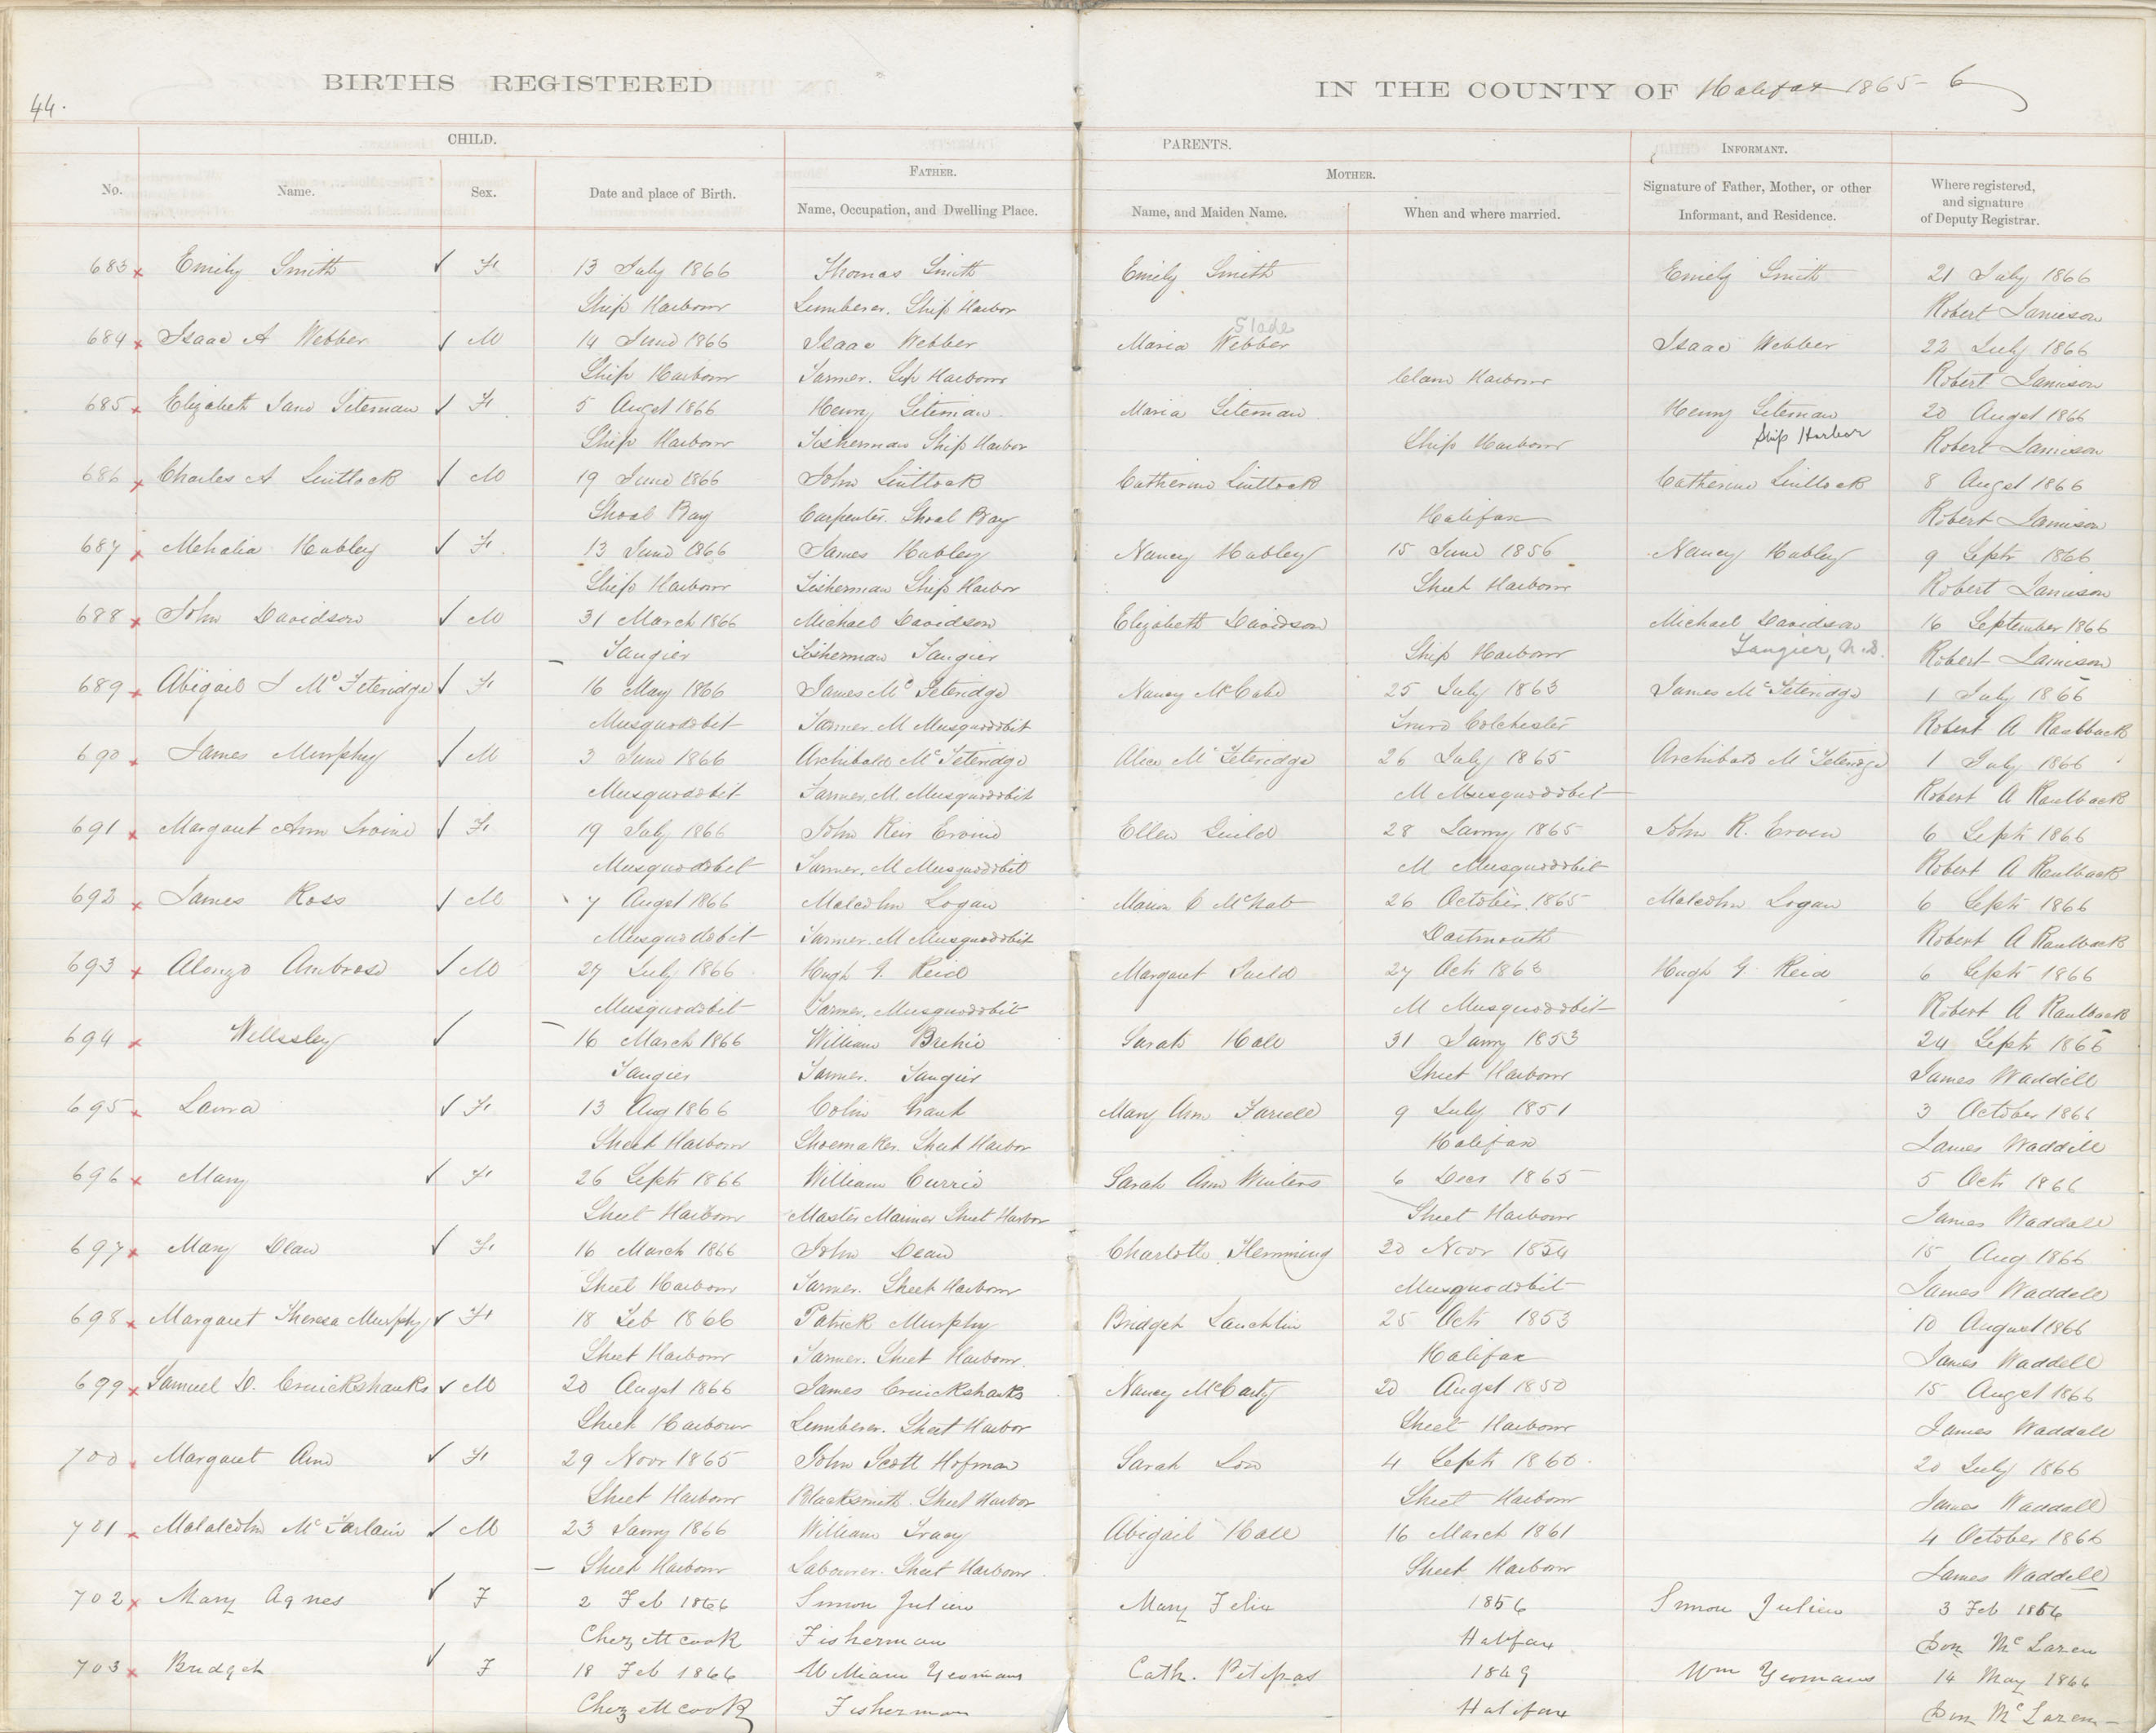 44.
BIRTHS REGISTERED IN THE COUNTY OF Halifax 1865-6
CHILD. PARENTS. INFORMANT.
No. Name. Sex. Date and place of Birth. FATHER. Name, Occupation, and Dwelling Place. MOTHER. Name, and Maiden Name. When and where married. Signature of Father, Mother, or other Informant, and Residence. Where registered, and signature of Deputy Registrar.
683 x Emily Smith ✓ F 13 July 1866 Thomas Smith Emily Smith Emily Smith 21 July 1866
Ship Harbour Lumberer. Ship Harbor Robert Jamieson
Slade
684 x Isaac A Webber ✓ M 14 June 1866 Isaac Webber Maria Webber Isaac Webber 22 July 1866
Ship Harbour Farmer. Sip Harbour Clam Harbour Robert Jamison
685 x Elizabeth Jane Siteman ✓ F 5 Augst 1866 Henry Siteman Maria Siteman Henry Siteman 20 Augst 1866
Ship Harbour Fisherman Ship Harbor Ship Harbour Ship Harbor Robert Jamieson
686 x Charles A Liuttock ✓ M 19 June 1866 John Liuttock Catherine Liuttock Catherine Liuttock 8 Augst 1866
Shoal Bay Carpenter. Shoal Bay Halifax Robert Jamison
687 x Mehalia Hubley ✓ F. 13 June 1866 James Hubley Nancy Hubley 15 June 1856 Nancy Hubley 9 Sept 1866
Ship Harbour Fisherman Ship Harbor Sheet Harbour Robert Jamieson
688 x John Davidson ✓ M 31 March 1866 Michael Davidson Elizabeth Davidson Michael Davidson 16 September 1866
Tangier Fisherman Tangier Ship Harbour Tangier, N.S. Robert Jamieson
689 x Abigail J McFeteridge ✓ F 16 May 1866 James McFeteridge Nancy McCabe 25 July 1863 James McFeteridge 1 July 1866
Musquodobit Farmer. M Musquodobit Truro Colchester Robert A Kaulback
690 x James Murphy ✓ M 3 June 1866 Archibald McFeteridge Alice McFeteridge 26 July 1865 Archibald McFeteridge 1 July 1866
Musquodobit Farmer, M. Musquodobit M Musquodobit Robert A Kaulback
691 x Margaret Ann Irvine ✓ F 19 July 1866 John Keir Ervine Ellen Guild 28 Janry 1865 John K. Ervin 6 Sept 1866
Musquodobit Farmer, M Musquodobit M Musquodobit Robert A Kaulback
692 x James Ross ✓ M 7 Augst 1866 Malcolm Logan Maria C McNab 26 October 1865 Malcolm Logan 6 Sept 1866
Musquodobet Farmer. M Musquodobit Dartmouth Robert A Kaulback
693 x Alonzo Ambrose ✓ M 27 July 1866 Hugh G. Reid Margaret Guild 27 Oct 1866 Hugh G Reid 6 Sept 1866
Musquodobit Farmer, Musquodobit M Musquodobit Robert A Kaulback
694 x Wellesley ✓ 16 March 1866 William Sarah Hall 31 Janry 1853 24 Sept 1866
Tangier Farmer. Tangier Sheet Harbour James Waddell
695 x Laura ✓ F 13 Aug 1866 Colin Grant Mary Ann Farrell 9 July 1851 3 October 1866
Sheet Harbour Shoemaker. Sheet Harbor Halifax James Waddell
696 x Mary ✓ F 26 Sept 1866 William Currie Sarah Ann Winters 6 Decr 1865 5 Oct 1866
Sheet Harbour Master Mariner Sheet Harbor Sheet Harbour James Waddell
697 x Mary Dean ✓ F 16 March 1866 John Dean Charlotte Flemming 20 Novr 1854 15 Aug 1866
Sheet Harbour Farmer. Sheet Harbour Musquodobit James Waddell
698 x Margaret Theresa Murphy ✓ F 18 Feb 1866 Patrick Murphy Bridget Lauchlin 25 Oct 1853 10 August 1866
Sheet Harbour Farmer. Sheet Harbour. Halifax James Waddell
699 x Samuel D. Cruickshanks ✓ M 20 Augst 1866 James Cruickshanks Nancy McCarty 20 Augst 1850 15 Augst 1866
Sheet Harbour Lumberer. Sheet Harbor Sheet Harbour James Waddell
700 x Margaret Ann ✓ F 29 Novr 1865 John Scott Hofman Sarah Low 4 Sept 1860. 20 July 1866
Sheet Harbour Blacksmith. Sheet Harbor Sheet Harbour James Waddell
701 x Malalcolm McFarlain ✓ M 23 Janry 1866 William Tracy Abigail Hall 16 March 1861 4 October 1866
Sheet Harbour Labourer. Sheet Harbour. Sheet Harbour James Waddell
702 x Mary Agnes ✓ F 2 Feb 1866 Simon Julien Mary Felix 1856 Simon Julien 3 Feb 1866
Chezettcook Fisherman Halifax McLaren
703 x Bridget ✓ F 18 Feb 1866 William Yeomans Cath. Petipas 1849 Wm Yeomans 14 May 1866
Chezettcook Fisherman Halifax McLaren